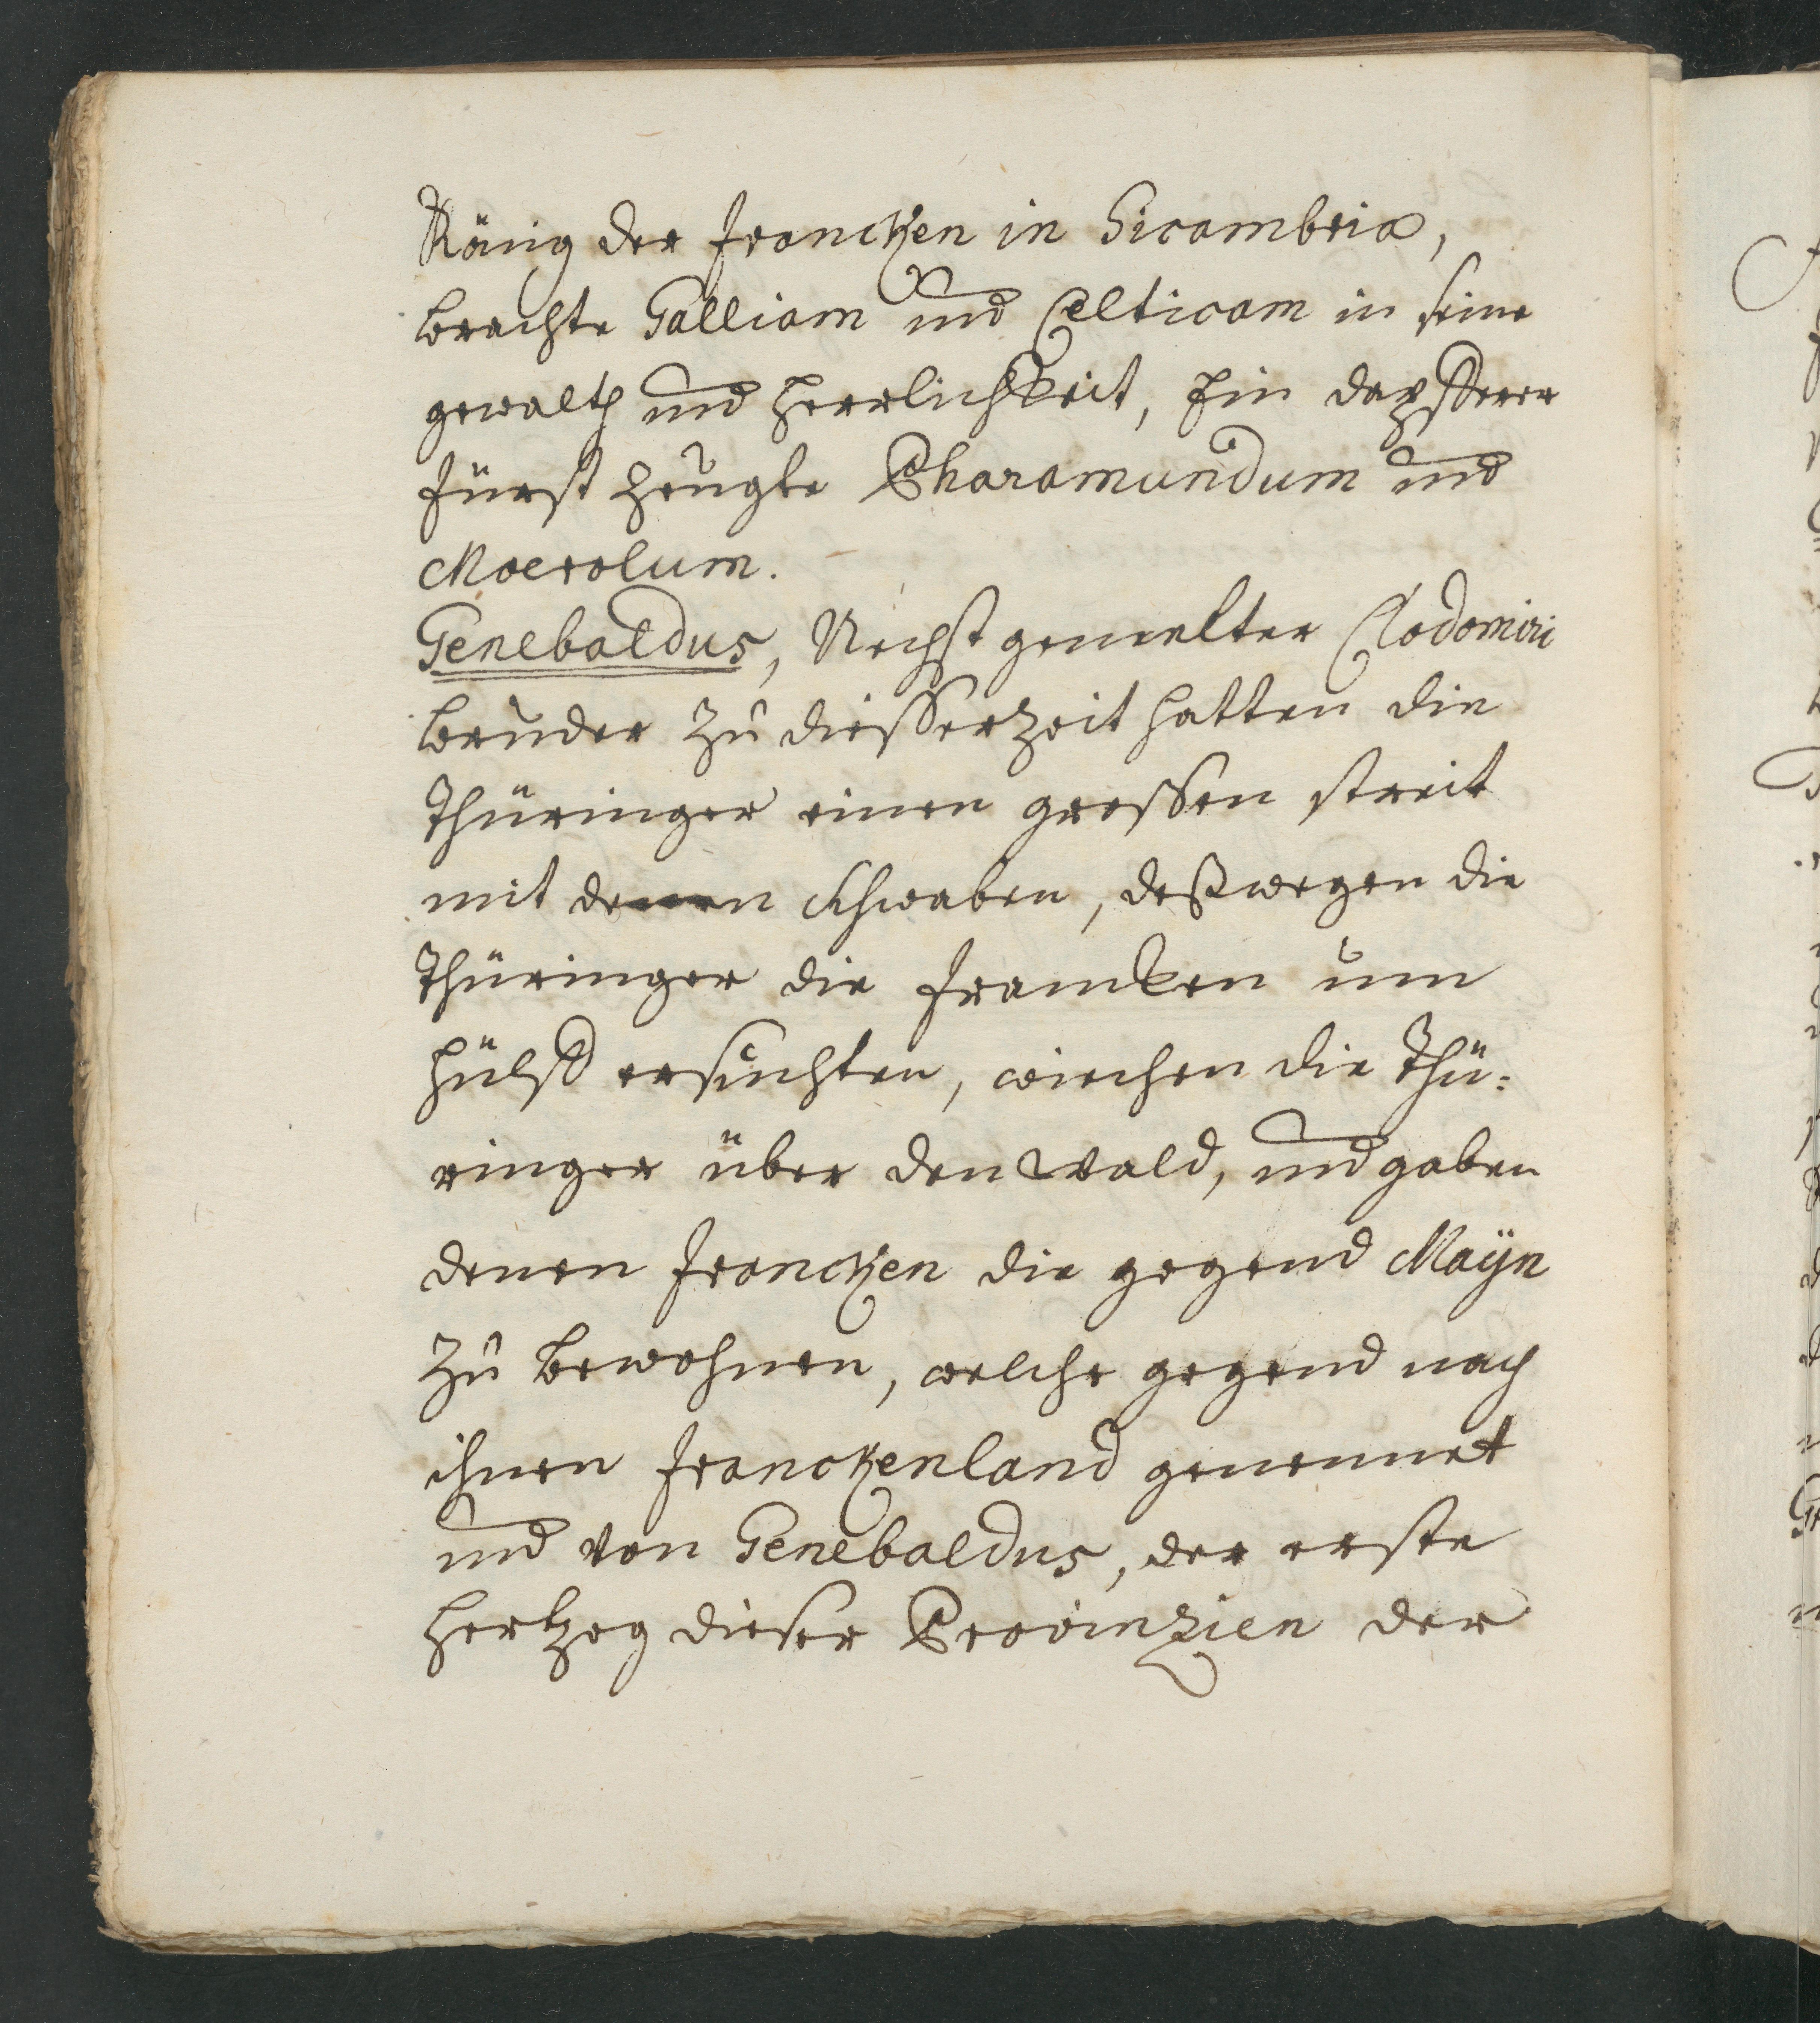 König der Francken in Sicambria,
brachte Galliam und Celticam in seine
gewalth und Herrlichkeit, Ein dapfferer
Fürst zeugte Pharamundum und
Moerolum.
Genebaldus, Nechst gemelter Clodomiri
bruder zu diesser zeit hatten die
Thüringer einen grossen streit
mit denen Schwaben, deßwegen die
Thüringer die Francken um
Hülff ersuchten, wiechen die Thü-
ringer über den Wald, und gaben
denen Francken die gegend Mayn
zu bewohnen, welche gegend nach
ihnen Franckenland genennet
und von Genebaldus, der erste
Hertzog dieser Provinzien der